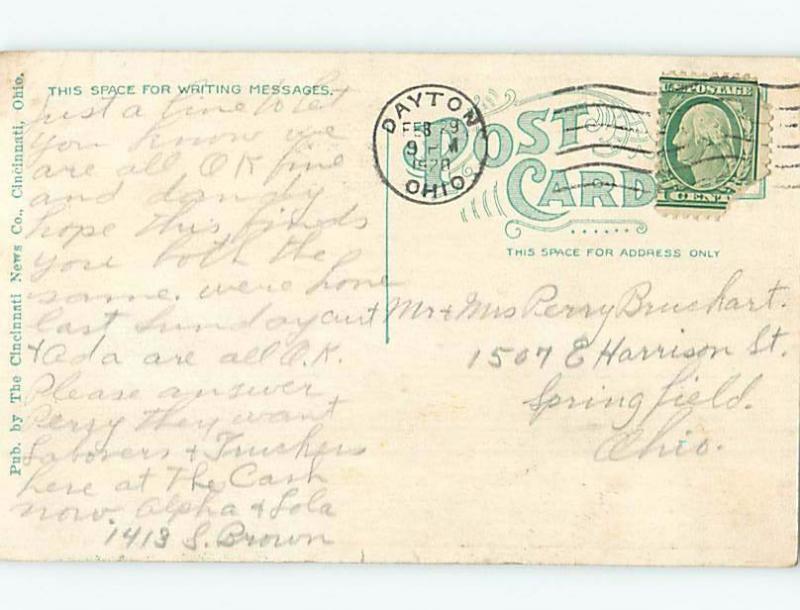 Pub. by The Cincinnati News Co., Cincinnati, Ohio.
THIS SPACE FOR WRITING MESSAGES.
Just a line to let
you know we
are all O.K fine
and dandy
hope this finds
you both the
same. were home
last Sunday aunt
+ Ada are all O.K.
Please answer
Perry they want
Laborers + Truckers
here at The Cash
now. Alpha + Lola
1413 S. Brown
DAYTON
FEB 9
9 M
OHIO
POST
CARD
THIS SPACE FOR ADDRESS ONLY
U.S. POSTAGE
CENT
Mr + Mrs Perry Bruchart.
1507 E Harrison St.
Springfield.
Ohio.